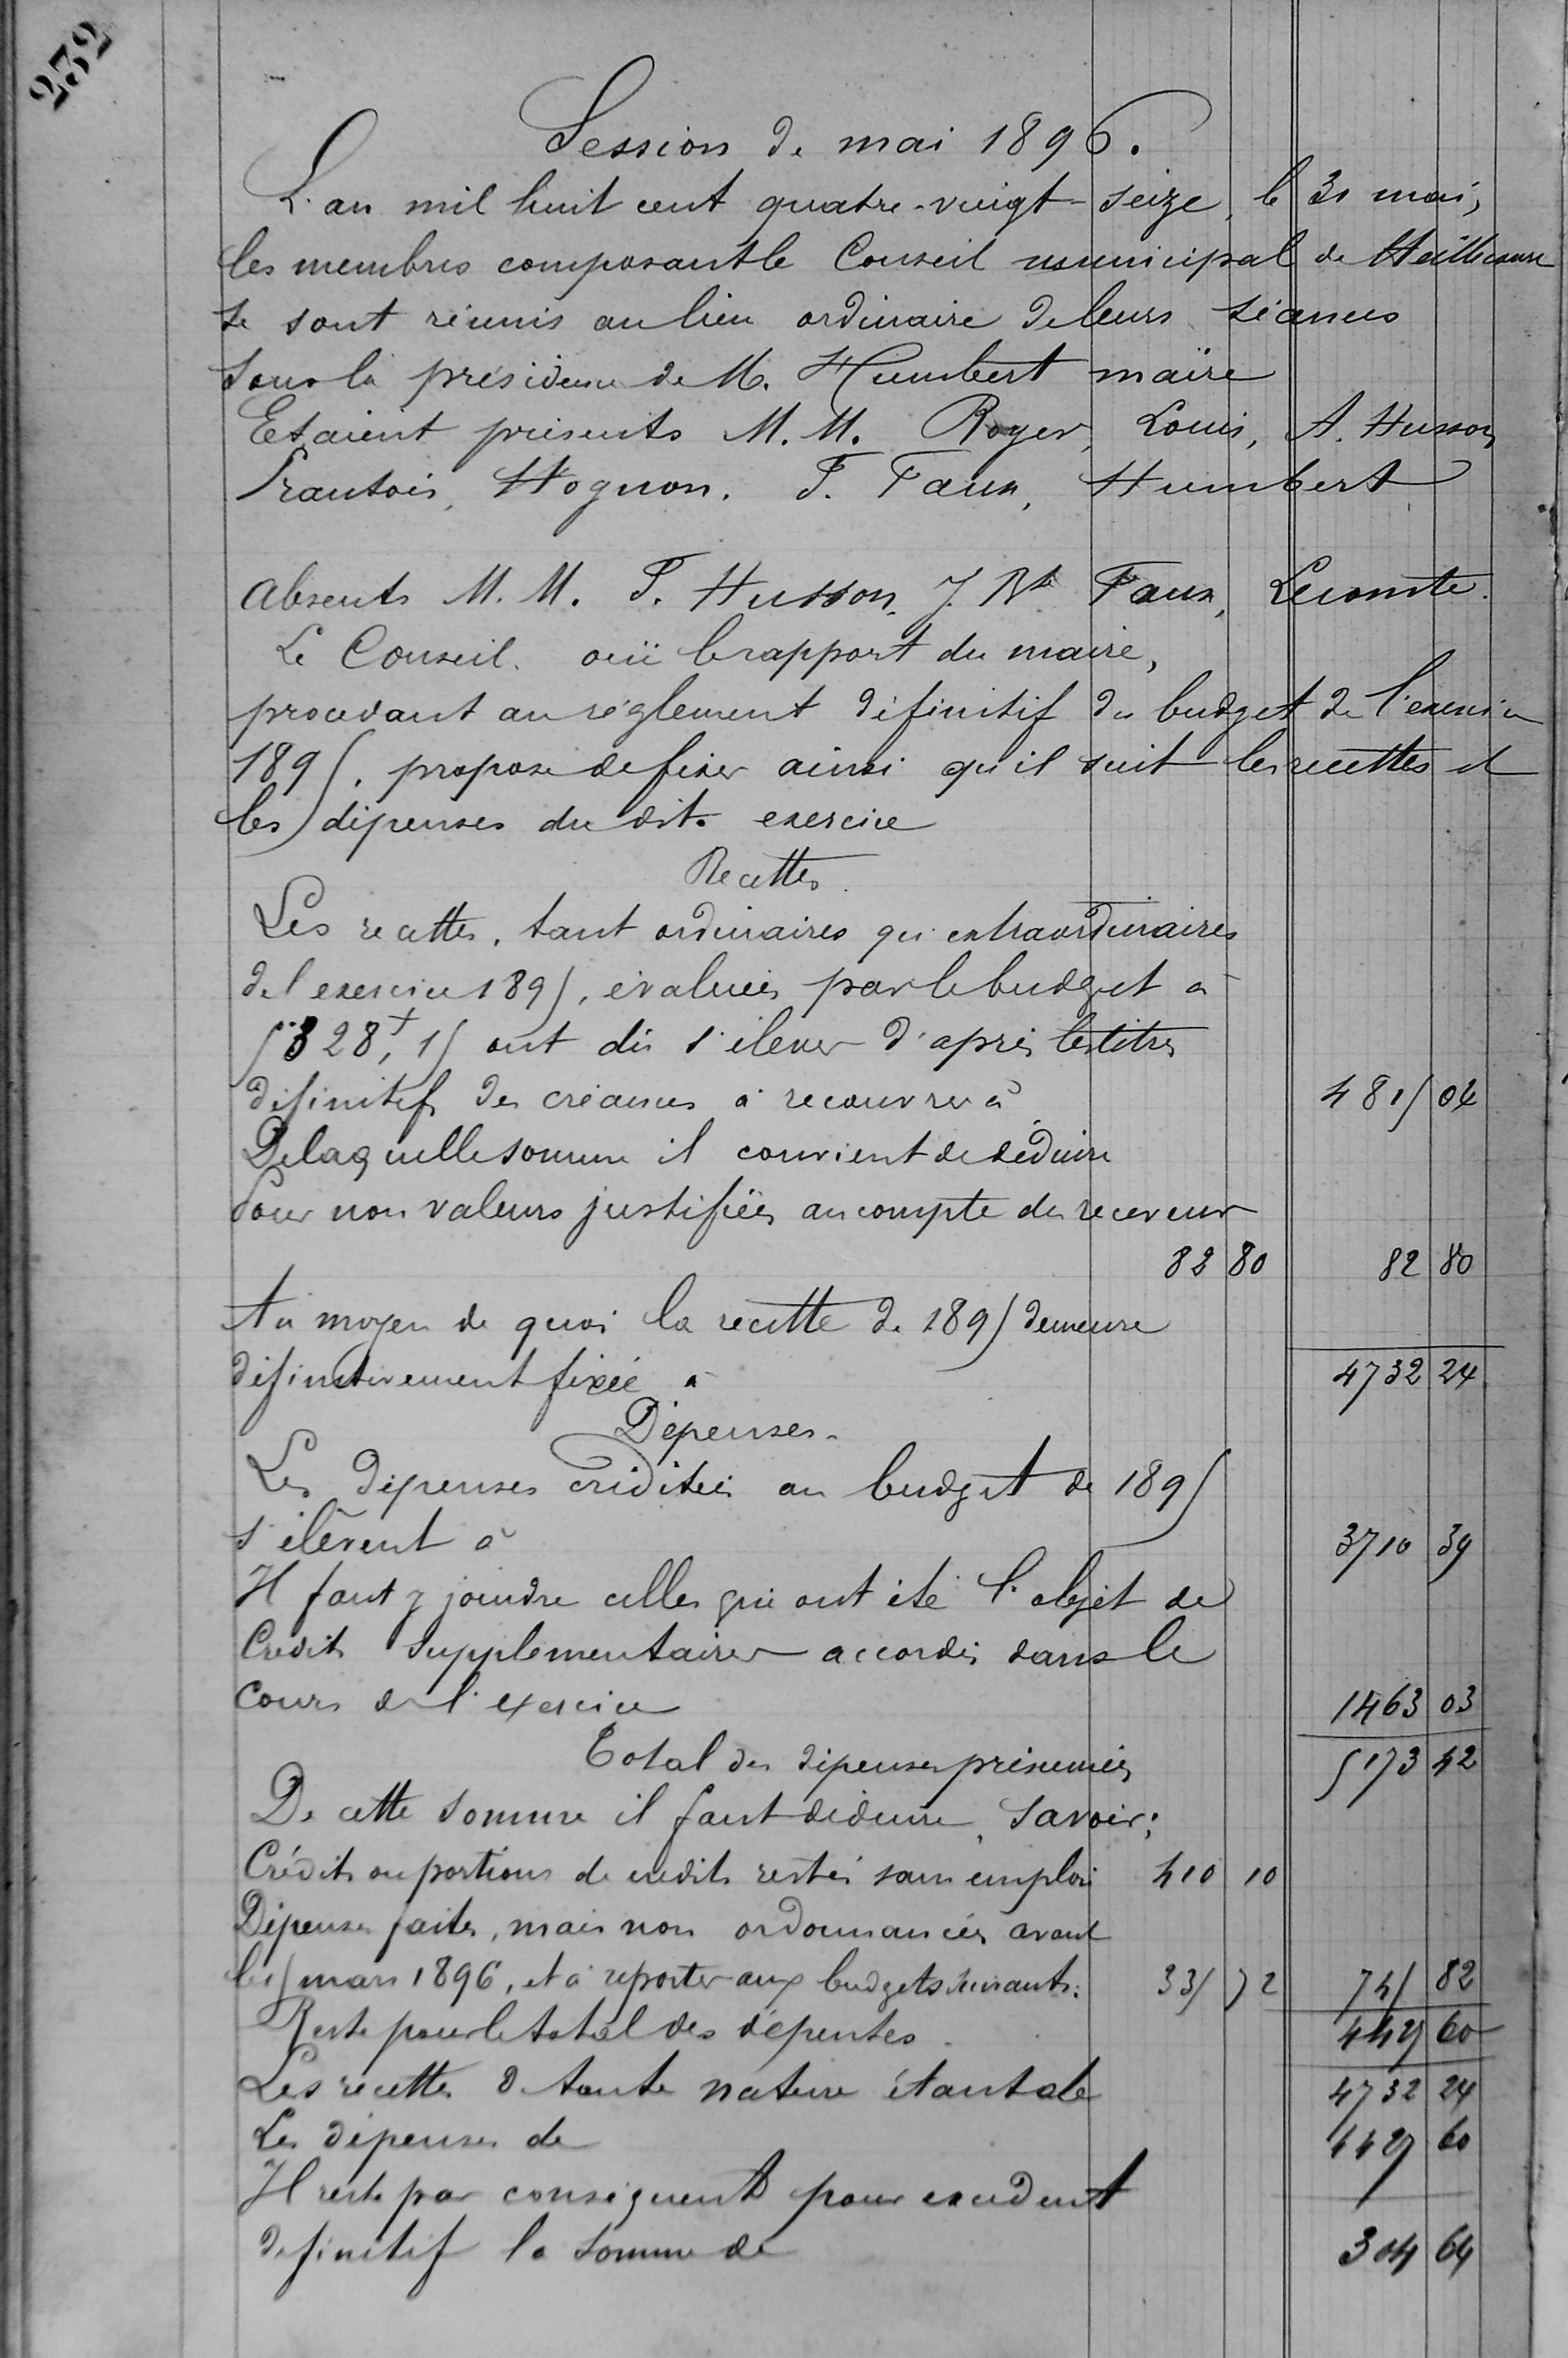 232
Session de mai 1896.
L'an mil huit cent quatre-vingt-seize, le 31 mai,
les membres composant le Conseil municipal de Heillecourt
se sont réunis au lieu ordinaire de leurs séances
sous la présidence de M. Humbert maire
Etaient présents M. M. Royer, Louis, A. Husson,
Frantois, Hognon. F. Faux, Humbert
Absents M. M. F. Husson, J. Bte Faux, Lecomte.
Le Conseil, ouï le rapport du maire,
procedant au réglement définitif du budget de l'exercice
1895, propose de fixer ainsi qu'il suit les recettes et
les dépenses du dit exercice
Recettes
Les recettes, tant ordinaires qu'extraordinaires
de l'exercice 1895, évaluées par le budget à
5328f,15 ont dû s'élever d'après les titres
définitifs des créances à recouvrer à 4815 04
De laquelle somme il convient de déduire
Pour non valeurs justifiées au compte du receveur
82 80 82 80
Au moyen de quoi la recette de 1895 demeure
définitivement fixée à 4732 24
Dépenses.
Les dépenses créditées au budget de 1895
s'élèvent à 3710 39
Il faut y joindre celles qui ont été l'objet de
Crédits supplémentaires accordés dans le
cours de l'exercice 1463 03
Total des dépenses présumées 5173 42
De cette somme il faut déduire, savoir:
Crédits ou portions de crédits restés sans emploi 410 10
Dépenses faites, mais non ordonnancées avant
le 15 mars 1896, et à reporter aux budgets suivants: 335 72 745 82
Reste pour le total des dépenses. 4427 60
Les recettes de toute nature étant de 4732 24
Les dépenses de 4427 60
Il reste par conséquent pour excédent
définitif la somme de 304 64